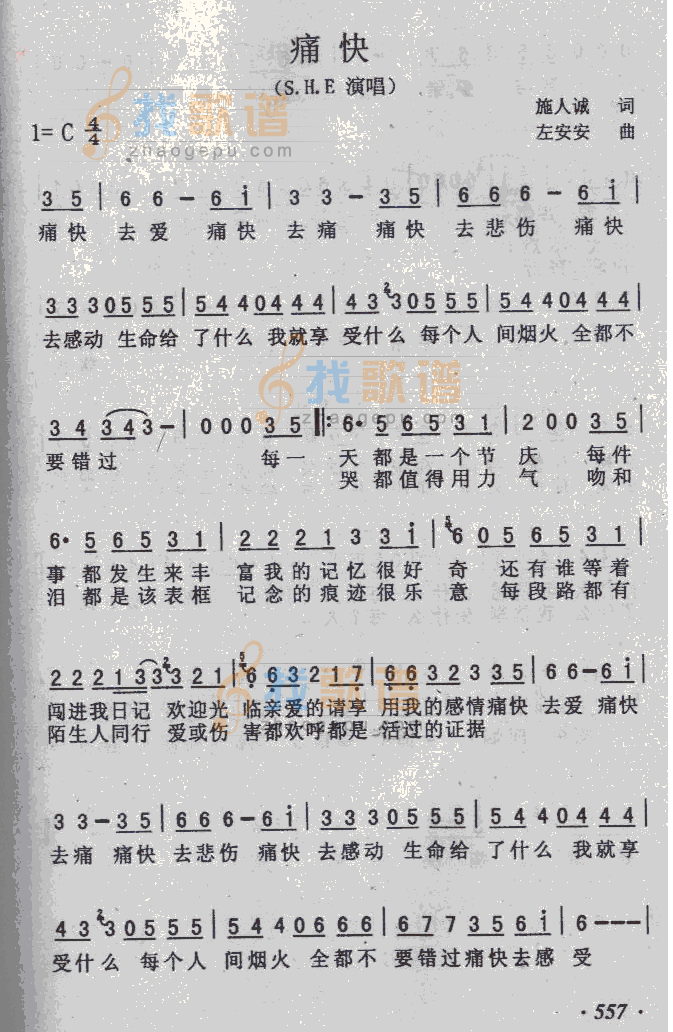 痛快
(S.H.E 演唱)
施人诚 词
1=C 4/4
左安安 曲
找歌谱
zhaogepu.com
3 5 | 6 6 - 6 i | 3 3 - 3 5 | 6 6 6 - 6 i |
痛快 去爱 痛快 去痛 痛快 去悲伤 痛快
3 3 3 0 5 5 5 | 5 4 4 0 4 4 4 | 4 3 2 3 0 5 5 5 | 5 4 4 0 4 4 4 |
去感动 生命给 了什么 我就享 受什么 每个人 间烟火 全都不
找歌谱
zhaogepu.com
3 4 3 4 3 - | 0 0 0 3 5 ‖: 6· 5 6 5 3 1 | 2 0 0 3 5 |
要错过 每一 天都是一个节 庆 每件
哭都值得用力 气 吻和
6· 5 6 5 3 1 | 2 2 2 1 3 3 i | 5 6 0 5 6 5 3 1 |
事都发生来丰 富我的记忆很好 奇 还有谁等着
泪都是该表框 记念的痕迹很乐 意 每段路都有
2 2 2 1 3 3 2 3 2 1 | 5 6 6 3 2 1 7 | 6 6 3 2 3 3 5 | 6 6 - 6 i |
闯进我日记 欢迎光 临亲爱的请享 用我的感情痛快 去爱 痛快
陌生人同行 爱或伤 害都欢呼都是 活过的证据
找歌谱
zhaogepu.com
3 3 - 3 5 | 6 6 6 - 6 i | 3 3 3 0 5 5 5 | 5 4 4 0 4 4 4 |
去痛 痛快 去悲伤 痛快 去感动 生命给 了什么 我就享
4 3 2 3 0 5 5 5 | 5 4 4 0 6 6 6 | 6 7 7 3 5 6 i | 6 - - - |
受什么 每个人 间烟火 全都不 要错过痛快去感 受
· 557 ·